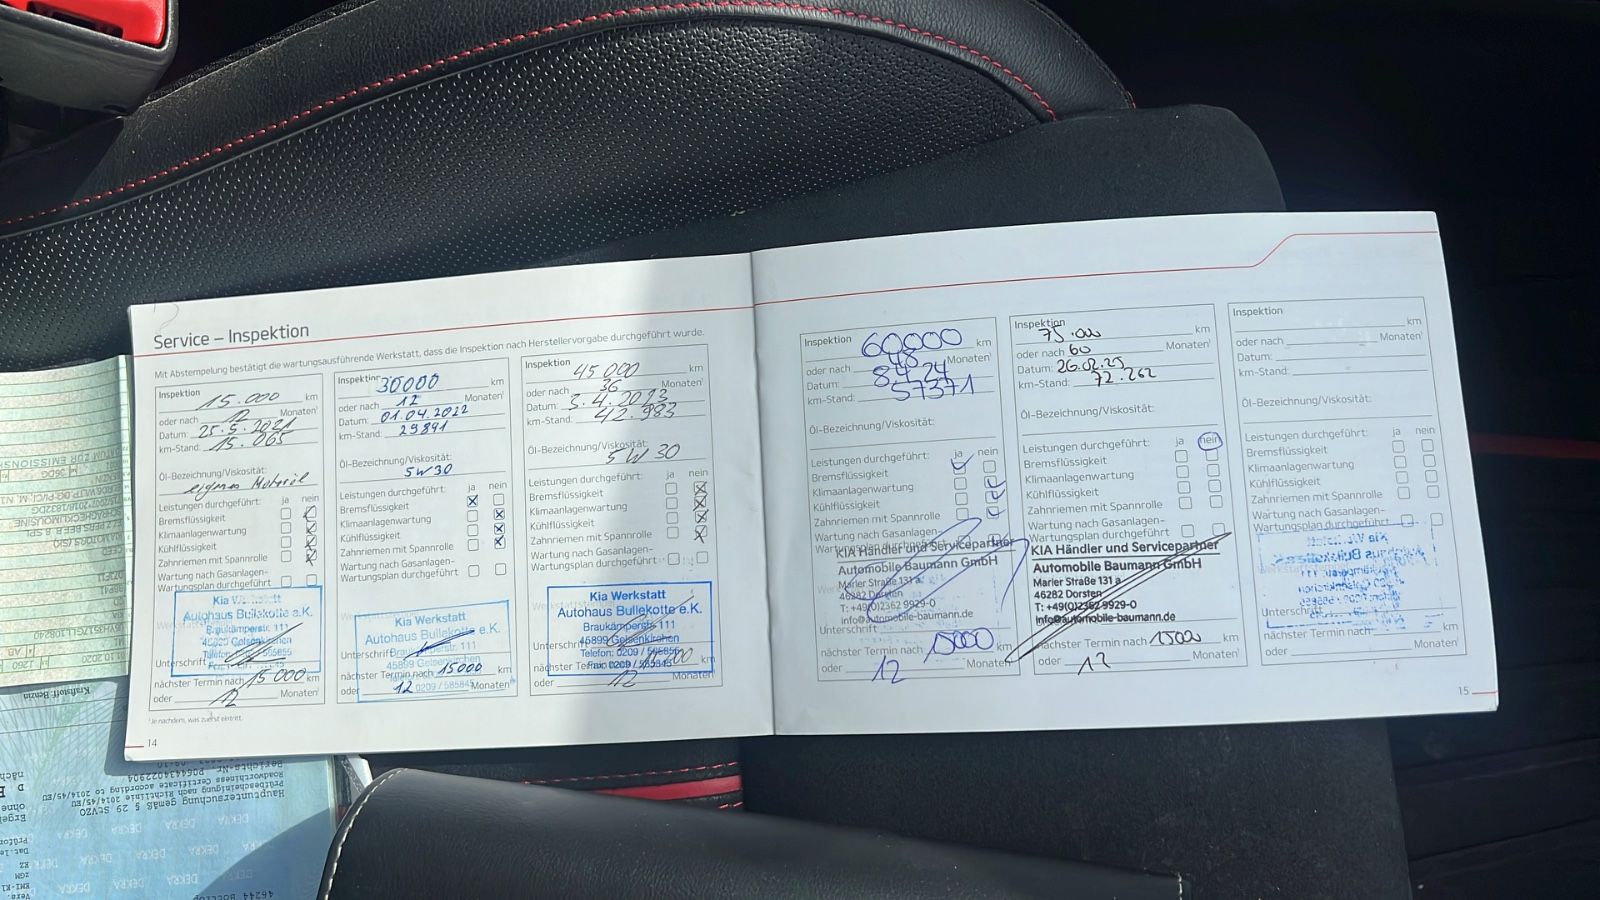 Service – Inspektion
Mit Abstempelung bestätigt die wartungsausführende Werkstatt, dass die Inspektion nach Herstellervorgabe durchgeführt wurde.
Inspektion
15.000 km
oder nach 12 Monaten¹
Datum: 25.5.2021
km-Stand: 15.065
Öl-Bezeichnung/Viskosität:
eigenes Motoröl
Leistungen durchgeführt: ja nein
Bremsflüssigkeit
Klimaanlagenwartung
Kühlflüssigkeit
Zahnriemen mit Spannrolle
Wartung nach Gasanlagen-
Wartungsplan durchgeführt
Kia Werkstatt
Autohaus Bullekotte e.K.
Braukämperstr. 111
45899 Gelsenkirchen
Unterschrift
nächster Termin nach 15000 km
oder 12 Monaten¹
¹Je nachdem, was zuerst eintritt.
14
Inspektion
30000 km
oder nach 12 Monaten¹
Datum: 01.04.2022
km-Stand: 29891
Öl-Bezeichnung/Viskosität:
5W30
Leistungen durchgeführt: ja nein
Bremsflüssigkeit
Klimaanlagenwartung
Kühlflüssigkeit
Zahnriemen mit Spannrolle
Wartung nach Gasanlagen-
Wartungsplan durchgeführt
Kia Werkstatt
Autohaus Bullekotte e.K.
Unterschrift Braukämperstr. 111
45899 Gelsenkirchen
nächster Termin nach 15000 km
oder 12 Monaten¹
0209 / 585845
Inspektion
45000 km
oder nach 36 Monaten¹
Datum: 3.4.2023
km-Stand: 42.983
Öl-Bezeichnung/Viskosität:
5W30
Leistungen durchgeführt: ja nein
Bremsflüssigkeit
Klimaanlagenwartung
Kühlflüssigkeit
Zahnriemen mit Spannrolle
Wartung nach Gasanlagen-
Wartungsplan durchgeführt
Kia Werkstatt
Autohaus Bullekotte e.K.
Braukämperstr. 111
45899 Gelsenkirchen
Unterschrift Telefon: 0209 / 585855
nächster Termin nach 15000 km
Fax: 0209 / 585845
oder 12 Monaten¹
Inspektion 60000 km
oder nach 48 Monaten¹
Datum: 8.4.24
km-Stand: 57371
Öl-Bezeichnung/Viskosität:
Leistungen durchgeführt: ja nein
Bremsflüssigkeit
Klimaanlagenwartung
Kühlflüssigkeit
Zahnriemen mit Spannrolle
Wartung nach Gasanlagen-
Wartungsplan durchgeführt
KIA Händler und Servicepartner
Automobile Baumann GmbH
Marler Straße 131 a
46282 Dorsten
T: +49(0)2362 9929-0
info@automobile-baumann.de
Unterschrift
nächster Termin nach 15000 km
oder 12 Monaten¹
Inspektion
75.000 km
oder nach 60 Monaten¹
Datum: 26.02.25
km-Stand: 72.262
Öl-Bezeichnung/Viskosität:
Leistungen durchgeführt: ja nein
Bremsflüssigkeit
Klimaanlagenwartung
Kühlflüssigkeit
Zahnriemen mit Spannrolle
Wartung nach Gasanlagen-
Wartungsplan durchgeführt
KIA Händler und Servicepartner
Automobile Baumann GmbH
Marler Straße 131 a
46282 Dorsten
T: +49(0)2362 9929-0
info@automobile-baumann.de
nächster Termin nach 15000 km
oder 12 Monaten¹
Inspektion
km
oder nach Monaten¹
Datum:
km-Stand:
Öl-Bezeichnung/Viskosität:
Leistungen durchgeführt: ja nein
Bremsflüssigkeit
Klimaanlagenwartung
Kühlflüssigkeit
Zahnriemen mit Spannrolle
Wartung nach Gasanlagen-
Wartungsplan durchgeführt
Unterschrift
nächster Termin nach km
oder Monaten¹
15
Kraftstoff: Benzin
Hauptuntersuchung gemäß § 29 StVZO
Prüfbescheinigung nach Richtlinie 2014/45/EU
Roadworthiness Certificate according to 2014/45/EU
DEKRA